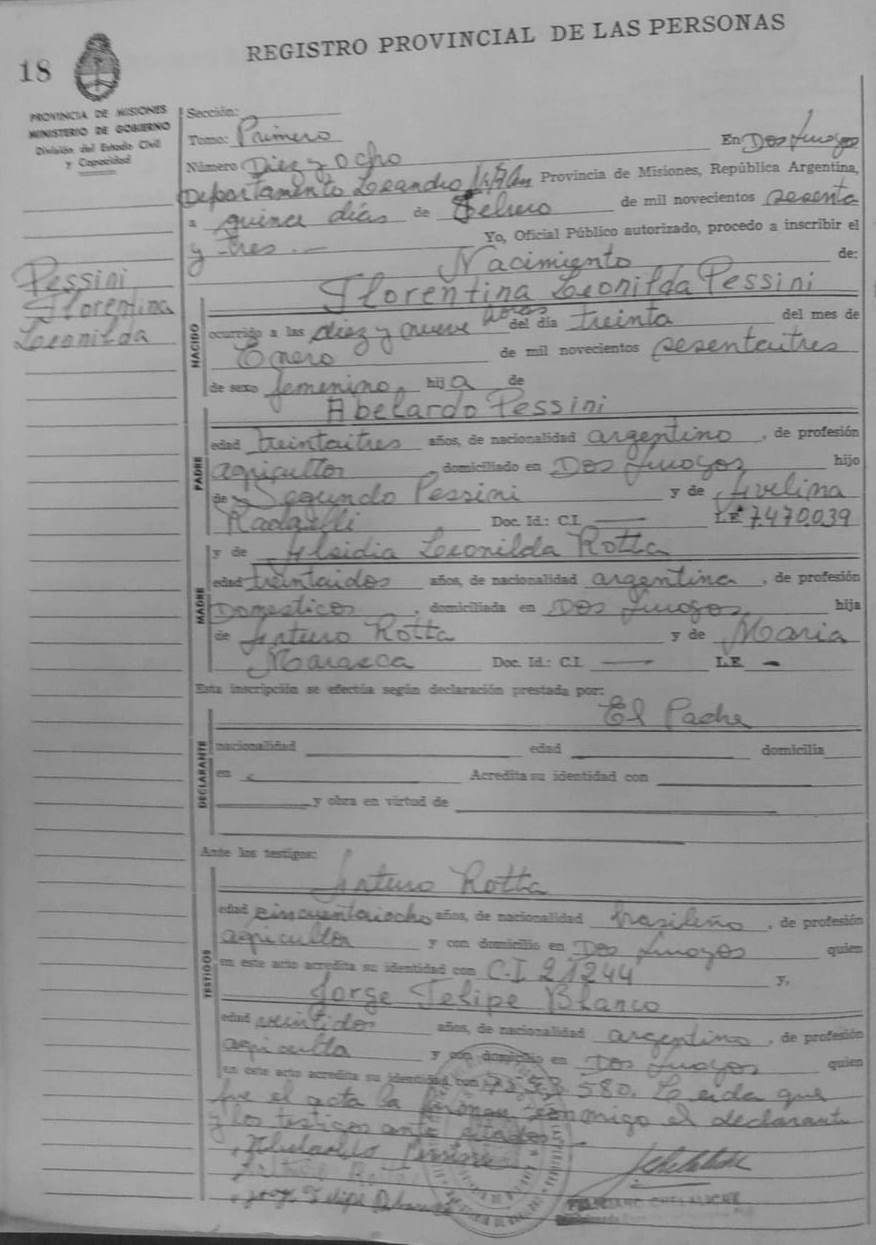 REGISTRO PROVINCIAL DE LAS PERSONAS
18
PROVINCIA DE MISIONES
MINISTERIO DE GOBIERNO
División del Estado Civil
y Capacidad
Pessini
Florentina
Leonilda
Sección:
Tomo: Primero En Dos
Número Diez y Ocho
Departamento Leandro N. Alem Provincia de Misiones, República Argentina,
a quince días de Febrero de mil novecientos sesenta
y tres.— Yo, Oficial Público autorizado, procedo a inscribir el
Nacimiento de:
NACIDO
Florentina Leonilda Pessini
ocurrido a las diez y nueve horas del día treinta del mes de
Enero de mil novecientos sesentaitres
de sexo femenino, hij a de
PADRE
Abelardo Pessini
edad treintaitres años, de nacionalidad argentino, de profesión
agricultor, domiciliado en Dos hijo
de Segundo Pessini y de Avelina
Doc. Id.: C.I. — L.E. 7.470.039
MADRE
y de Leonilda Rotta
edad treintaidos años, de nacionalidad argentina, de profesión
Domesticos, domiciliada en Dos hija
de Arturo Rotta y de Maria
Doc. Id.: C.I. — L.E. —
Esta inscripción se efectúa según declaración prestada por:
El Padre
DECLARANTE
nacionalidad edad domicilia
en Acredita su identidad con
y obra en virtud de
Ante los testigos:
TESTIGOS
Arturo Rotta
edad cincuentaiocho años, de nacionalidad brasileño, de profesión
agricultor y con domicilio en Dos quien
en este acto acredita su identidad con C.I 21244 y,
Jorge Felipe Blanco
edad veintidos años, de nacionalidad argentino, de profesión
agriculto y con domicilio en Dos quien
en este acto acredita su identidad con 580. Leida que
fue el acta la firman conmigo el declarante
y los testigos ante citados
Abelardo Pessini
Jorge Felipe Blanco